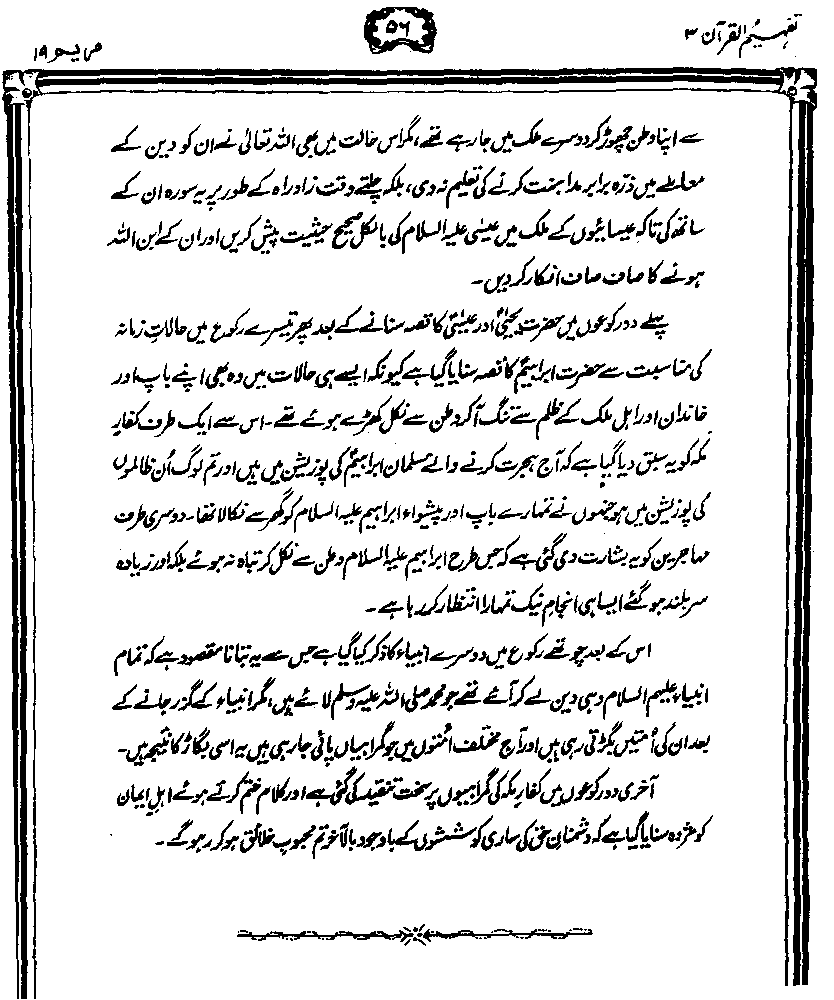 تفہیم القرآن ۳
۵۶
مریم ۱۹
سے اپنا وطن چھوڑ کر دوسرے ملک میں جا رہے تھے، مگر اس حالت میں بھی اللہ تعالیٰ نے ان کو دین کے
معاملے میں ذرّہ برابر مداہنت کرنے کی تعلیم نہ دی، بلکہ چلتے وقت زادِ راہ کے طور پر یہ سورہ ان کے
ساتھ کی تاکہ عیسائیوں کے ملک میں عیسیٰ علیہ السلام کی بالکل صحیح حیثیت پیش کریں اور ان کے ابن اللہ
ہونے کا صاف صاف انکار کر دیں۔
پہلے دو رکوعوں میں حضرت یحییٰؑ اور عیسیٰؑ کا قصہ سنانے کے بعد پھر تیسرے رکوع میں حالاتِ زمانہ
کی مناسبت سے حضرت ابراہیمؑ کا قصہ سنایا گیا ہے کیونکہ ایسے ہی حالات میں وہ بھی اپنے باپ اور
خاندان اور اہل ملک کے ظلم سے تنگ آ کر وطن سے نکل کھڑے ہوئے تھے۔ اس سے ایک طرف کفارِ
مکہ کو یہ سبق دیا گیا ہے کہ آج ہجرت کرنے والے مسلمان ابراہیمؑ کی پوزیشن میں ہیں اور تم لوگ اُن ظالموں
کی پوزیشن میں ہو جنہوں نے تمہارے باپ اور پیشواء ابراہیم علیہ السلام کو گھر سے نکالا تھا۔ دوسری طرف
مہاجرین کو یہ بشارت دی گئی ہے کہ جس طرح ابراہیم علیہ السلام وطن سے نکل کر تباہ نہ ہوئے بلکہ اور زیادہ
سربلند ہو گئے ایسا ہی انجام نیک تمہارا انتظار کر رہا ہے۔
اس کے بعد چوتھے رکوع میں دوسرے انبیاء کا ذکر کیا گیا ہے جس سے یہ بتانا مقصود ہے کہ تمام
انبیاء علیہم السلام وہی دین لے کر آئے تھے جو محمد صلی اللہ علیہ وسلم لائے ہیں، مگر انبیاء کے گزر جانے کے
بعد ان کی اُمتیں بگڑتی رہی ہیں اور آج مختلف اُمتوں میں جو گمراہیاں پائی جا رہی ہیں یہ اسی بگاڑ کا نتیجہ ہیں۔
آخری دو رکوعوں میں کفارِ مکہ کی گمراہیوں پر سخت تنقید کی گئی ہے اور کلام ختم کرتے ہوئے اہلِ ایمان
کو مژدہ سنایا گیا ہے کہ دشمنانِ حق کی ساری کوششوں کے باوجود بالآخر تم محبوبِ خلائق ہو کر رہو گے۔